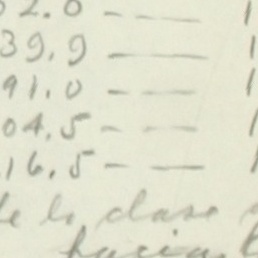 2.0 - ——
39.9 ————
91.0 — ——
04.5 - — —
16.5 — ——
de la clase
hacia